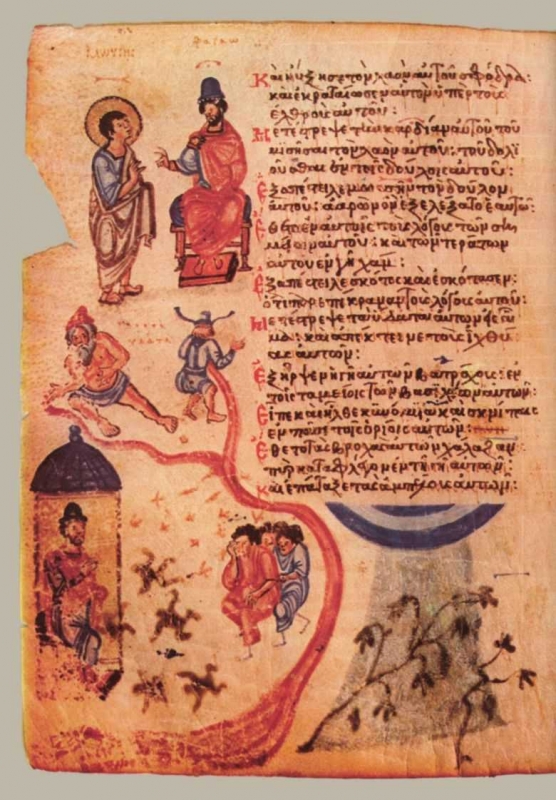 Καὶ ηὔξησε τὸν λαὸν αὐτοῦ σφόδρα:
καὶ ἐκραταίωσεν αὐτὸν ὑπὲρ τοὺς
ἐχθροὺς αὐτοῦ:
Μετέστρεψε τὴν καρδίαν αὐτοῦ τοῦ
μισῆσαι τὸν λαὸν αὐτοῦ: τοῦ δολι
οῦσθαι ἐν τοῖς δούλοις αὐτοῦ:
Ἐξαπέστειλε τὸν δοῦλον
αὐτοῦ: ἀαρὼν ὃν ἐξελέξατο ἑαυτῷ:
Ἔθετο ἐν αὐτοῖς τοὺς λόγους τῶν ση
μείων αὐτοῦ: καὶ τῶν τεράτων
αὐτοῦ ἐν γῇ χάμ:
Ἐξαπέστειλε σκότος καὶ ἐσκότασεν:
ὅτι παρεπίκραναν τοὺς λόγους αὐτοῦ:
Μετέστρεψε τὰ ὕδατα αὐτῶν εἰς αἷ
μα: καὶ ἀπέκτεινε τοὺς ἰχθύ
ας αὐτῶν:
Ἐξῆρψεν ἡ γῆ αὐτῶν βατράχους: ἐν
τοῖς ταμείοις τῶν βασιλέων αὐτῶν:
Εἶπε καὶ ἦλθε κυνόμυια καὶ σκνῖπες
ἐν πᾶσι τοῖς ὁρίοις αὐτῶν:
Ἔθετο τὰς βροχὰς αὐτῶν χάλαζαν
πῦρ καταφλέγον ἐν τῇ γῇ αὐτῶν:
Καὶ ἐπάταξε τὰς ἀμπέλους αὐτῶν: